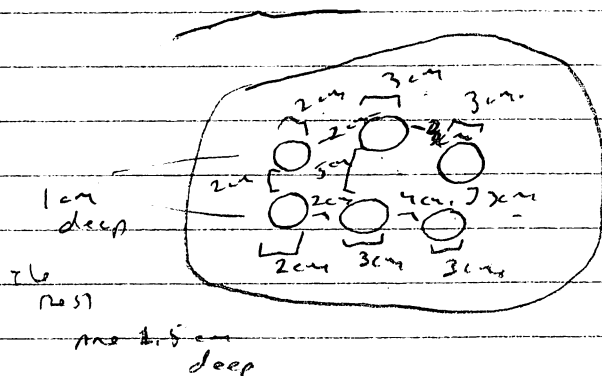 3 cm
2 cm
3 cm.
2 cm
5 cm
2 cm
1 cm
deep
2 cm
4 cm.
2 cm
3 cm
3 cm.
the
rest
are 1.5 cm
deep